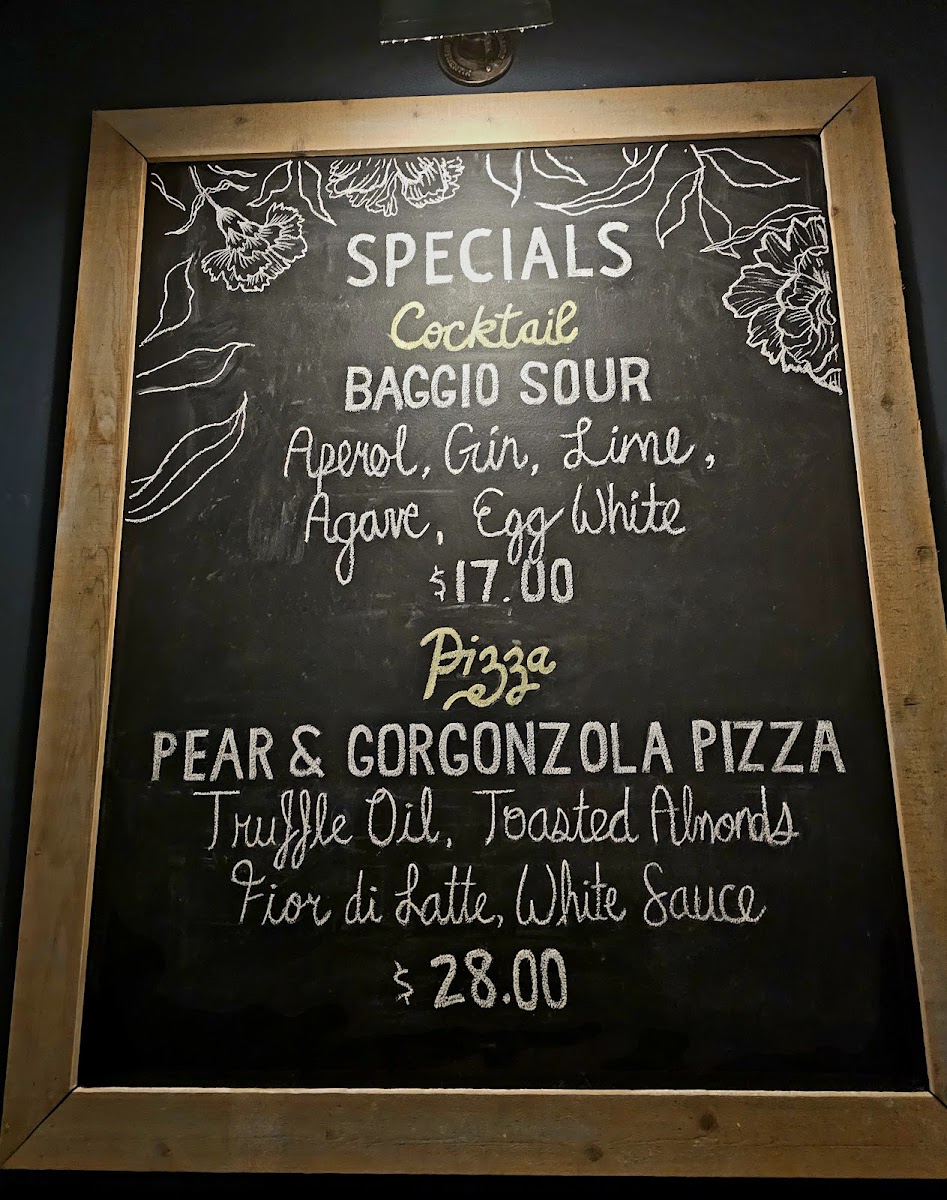 SPECIALS
Cocktail
BAGGIO SOUR
Aperol, Gin, Lime,
Agave, Egg White
$17.00
Pizza
PEAR & GORGONZOLA PIZZA
Truffle Oil, Toasted Almonds
Fior di Latte, White Sauce
$28.00